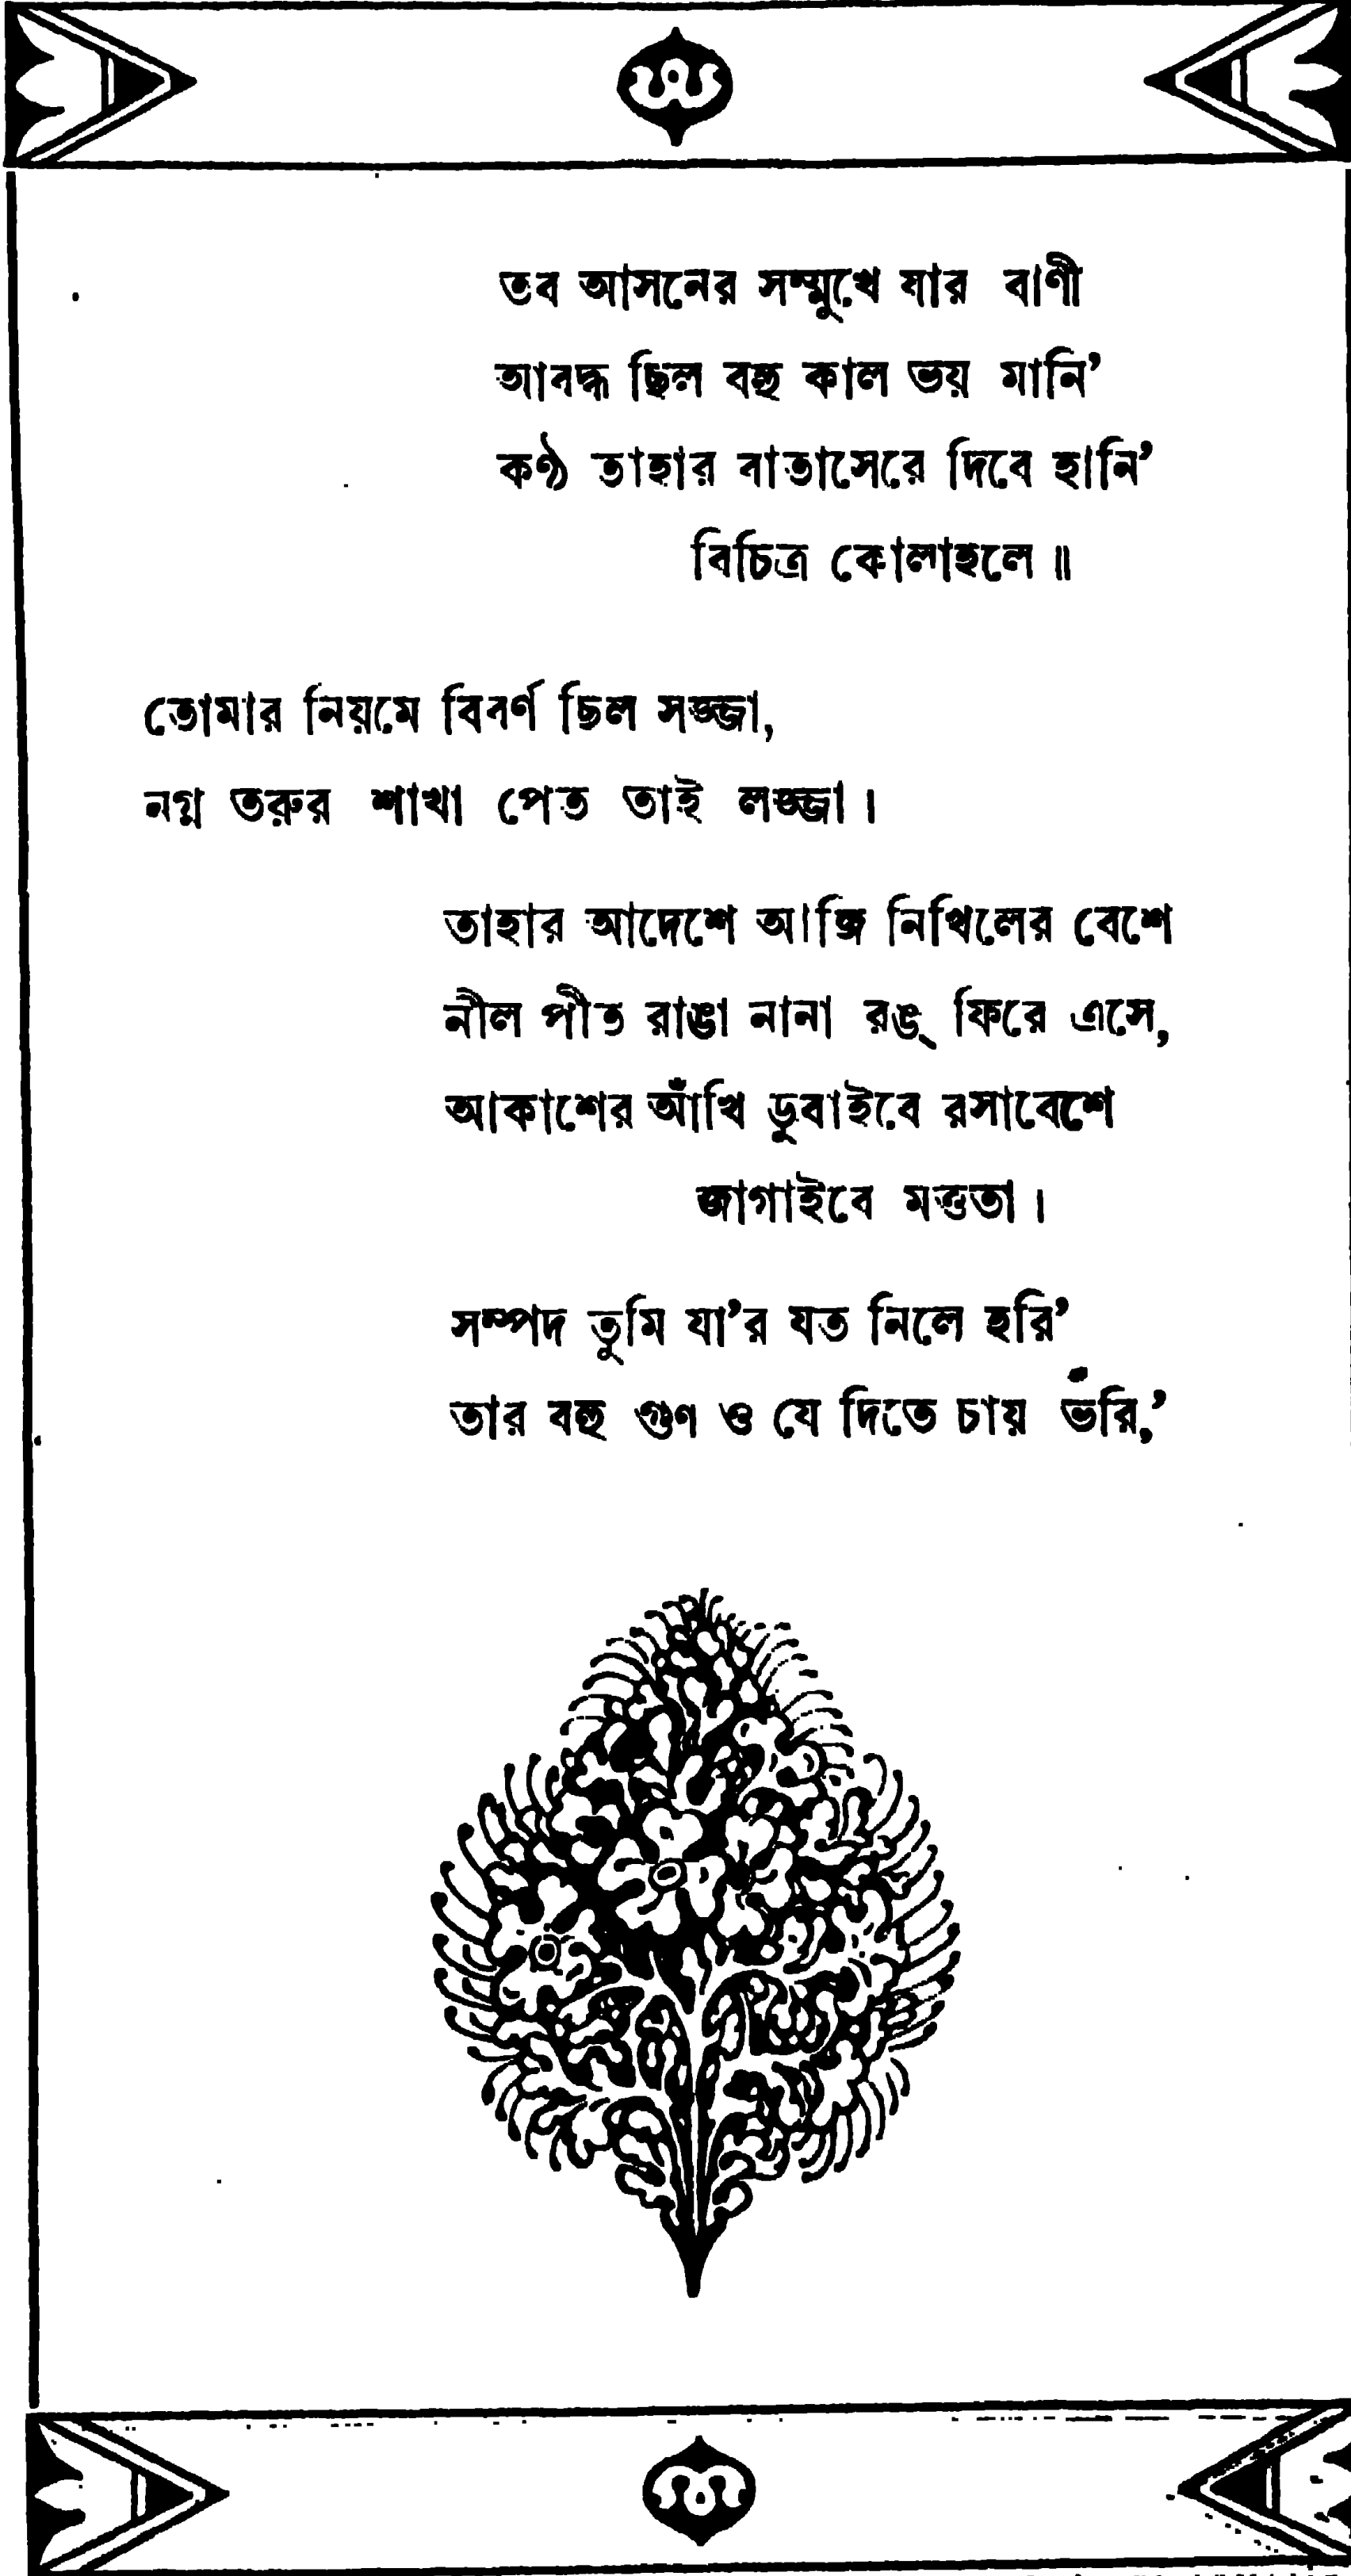 তব আসনের সম্মুখে যার বাণী
আবদ্ধ ছিল বহু কাল ভয় মানি’
কণ্ঠ তাহার বাতাসেরে দিবে হানি’
বিচিত্র কোলাহলে॥
তোমার নিয়মে বিবর্ণ ছিল সজ্জা,
নগ্ন তরুর শাখা পেত তাই লজ্জা।
তাহার আদেশে আজি নিখিলের বেশে
নীল পীত রাঙা নানা রঙ্ ফিরে এসে,
আকাশের আঁখি ডুবাইবে রসাবেশে
জাগাইবে মত্ততা।
সম্পদ তুমি যা’র যত নিলে হরি’
তার বহু গুণ ও যে দিতে চায় ভরি,’